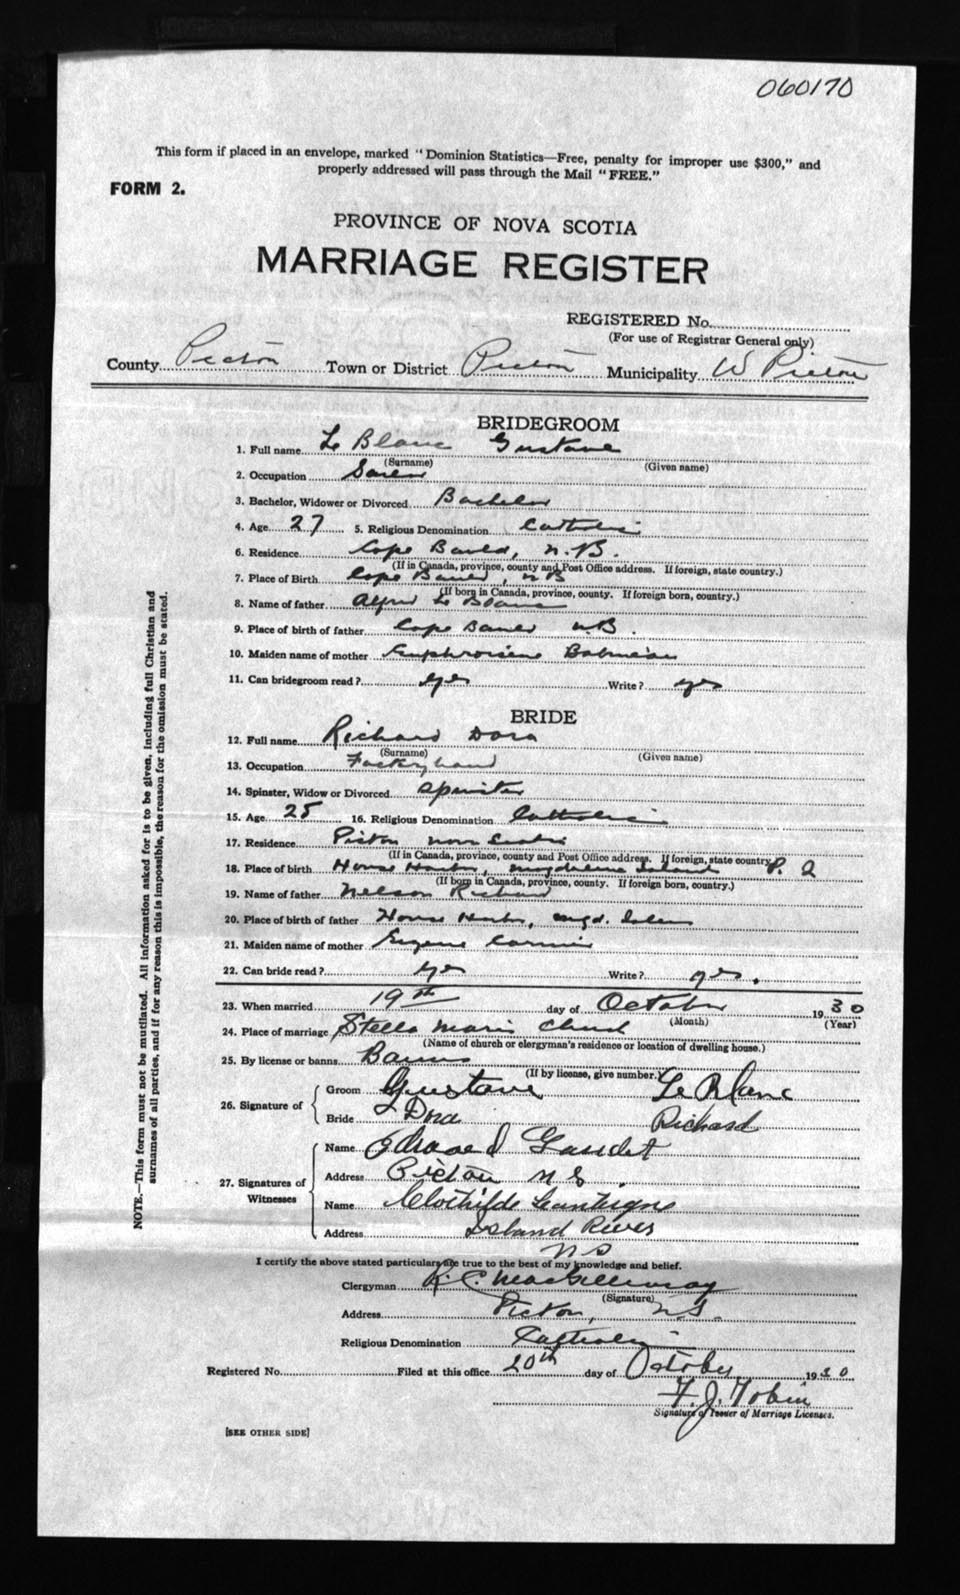 060170
This form if placed in an envelope, marked "Dominion Statistics—Free, penalty for improper use $300," and
properly addressed will pass through the Mail "FREE."
FORM 2.
PROVINCE OF NOVA SCOTIA
MARRIAGE REGISTER
REGISTERED No.
(For use of Registrar General only)
County Pictou Town or District Pictou Municipality W Pictou
BRIDEGROOM
1. Full name Le Blanc Gustave
(Surname) (Given name)
2. Occupation
3. Bachelor, Widower or Divorced Bachelor
4. Age 27 5. Religious Denomination Catholic
6. Residence Cape Bauld, N.B.
(If in Canada, province, county and Post Office address. If foreign, state country.)
7. Place of Birth Cape Bauld, NB
(If born in Canada, province, county. If foreign born, country.)
8. Name of father Alfred Le Blanc
9. Place of birth of father Cape Bauld N.B.
10. Maiden name of mother
11. Can bridegroom read? yes Write? yes
BRIDE
12. Full name Richard Dora
(Surname) (Given name)
13. Occupation Factory hand
14. Spinster, Widow or Divorced Spinster
15. Age 25 16. Religious Denomination Catholic
17. Residence Pictou Nova Scotia
(If in Canada, province, county and Post Office address. If foreign, state country
18. Place of birth House Harbor, Magdalene Island P. Q
(If born in Canada, province, county. If foreign born, country.)
19. Name of father Nelson Richard
20. Place of birth of father House Harbor, Magd. Islan
21. Maiden name of mother Cormier
22. Can bride read? yes Write? yes.
23. When married 19th day of October 1930
(Month) (Year)
24. Place of marriage Stella Maris Church
(Name of church or clergyman's residence or location of dwelling house.)
25. By license or banns Banns
(If by license, give number.)
26. Signature of Groom Gustave Le Blanc
Bride Dora Richard
27. Signatures of Witnesses Name Edward Gaudet
Address Pictou N S.
Name Clothilde
Address Island River
N S
I certify the above stated particulars are true to the best of my knowledge and belief.
Clergyman R. C. MacGillivray
(Signature)
Address Pictou, N.S.
Religious Denomination Catholic
Registered No. Filed at this office 20th day of October 1930
F. J. Tobin
Signature of Issuer of Marriage Licenses.
[SEE OTHER SIDE]
NOTE.—This form must not be mutilated. All information asked for is to be given, including full Christian and
surnames of all parties, and if for any reason this is impossible, the reason for the omission must be stated.